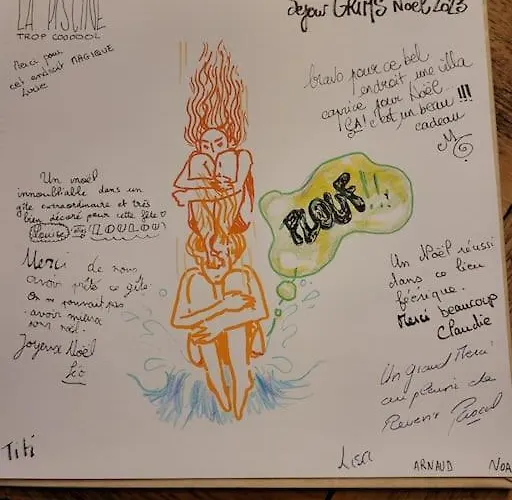 LA PISCINE
TROP COOOOOL
Merci pour
cet endroit MAGIQUE
Séjour GRIMS Noël 2023
bravo pour ce bel
endroit, une villa
caprice pour Noël
ÇA! c'est un beau !!!
cadeau
PLOUF!!
Un noël
innoubliable dans un
gîte extraordinaire et très
bien décoré pour cette fête
Louise LOULOU
Merci de nous
avoir prêté ce gîte.
On ne pouvait pas
avoir mieux
Joyeux Noël
Léo
Un Noël réussi
dans ce lieu
féerique.
Merci beaucoup
Claudie
Un grand Merci
au plaisir de
Revenir Pascal
Titi
Lisa
ARNAUD
NOA